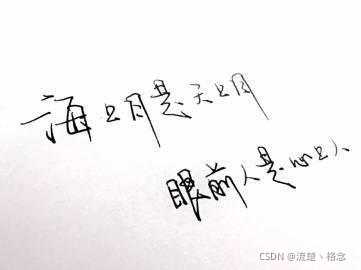 海上月是天上月
眼前人是心上人
CSDN @流楚丶格念